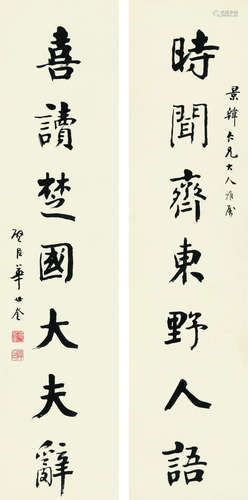 景韓仁兄大人雅屬
時聞齊東野人語
喜讀楚國大夫辭
華世奎